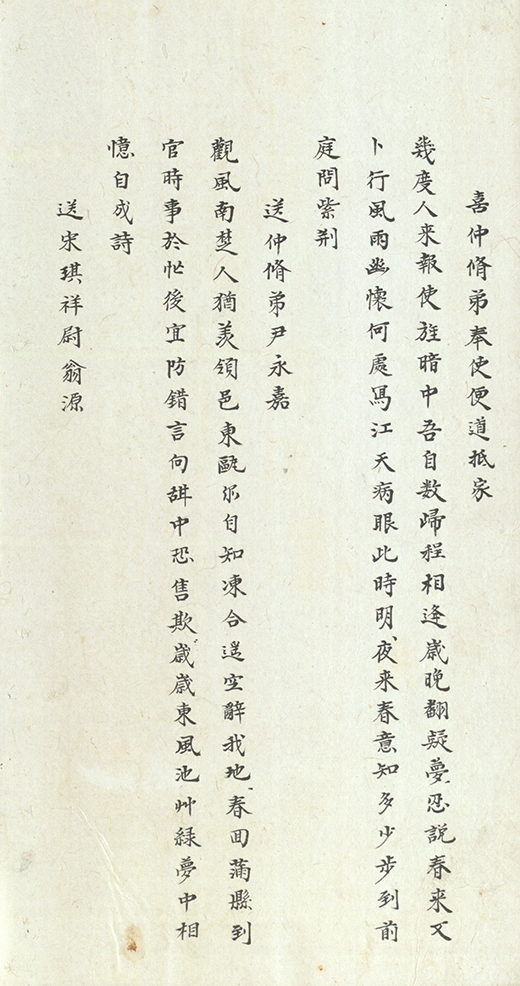 喜仲脩弟奉使便道抵家
幾度人来報使旌暗中吾自数歸程相逢歲晚翻疑夢忍說春来又
卜行風雨幽懷何處寫江天病眼此時明夜来春意知多少步到前
庭問紫荆
送仲脩弟尹永嘉
觀風南楚人猶羡領邑東甌尔自知凍合遥空辭我地春回蒲縣到
官時事於忙後宜防錯言向甜中恐售欺歲歲東風池艸緑夢中相
憶自成詩
送宋琪祥尉翁源